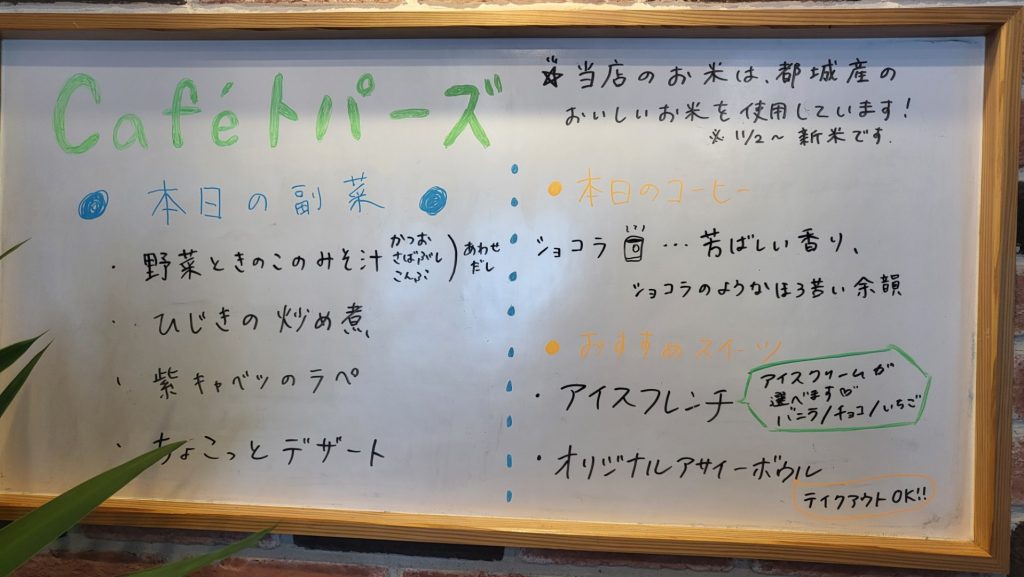 Caféトパーズ
● 本日の副菜 ●
・野菜ときのこのみそ汁
かつお
さばぶし
こんぶ
あわせ
だし
・ひじきの炒め煮
・紫キャベツのラペ
・ちょこっとデザート
☆当店のお米は、都城産の
おいしいお米を使用しています!
※11/2〜 新米です.
● 本日のコーヒー
ショコラ … 芳ばしい香り、
ショコラのようなほろ苦い余韻
● おすすめスイーツ
・アイスフレンチ
アイスクリームが
選べます♡
バニラ/チョコ/いちご
・オリジナルアサイーボウル
テイクアウトOK!!